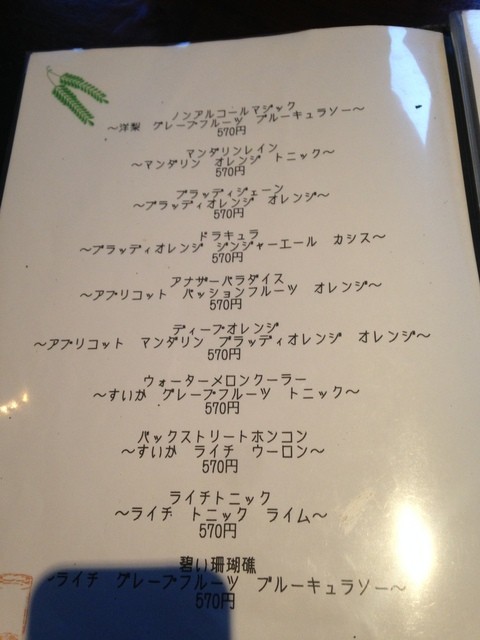 ノンアルコールマジック
～洋梨 グレープフルーツ ブルーキュラソー～
570円
マンダリンレイン
～マンダリン オレンジ トニック～
570円
ブラッディジェーン
～ブラッディオレンジ オレンジ～
570円
ドラキュラ
～ブラッディオレンジ ジンジャーエール カシス～
570円
アナザーパラダイス
～アプリコット パッションフルーツ オレンジ～
570円
ディープオレンジ
～アプリコット マンダリン ブラッディオレンジ オレンジ～
570円
ウォーターメロンクーラー
～すいか グレープフルーツ トニック～
570円
バックストリートホンコン
～すいか ライチ ウーロン～
570円
ライチトニック
～ライチ トニック ライム～
570円
碧い珊瑚礁
～ライチ グレープフルーツ ブルーキュラソー～
570円